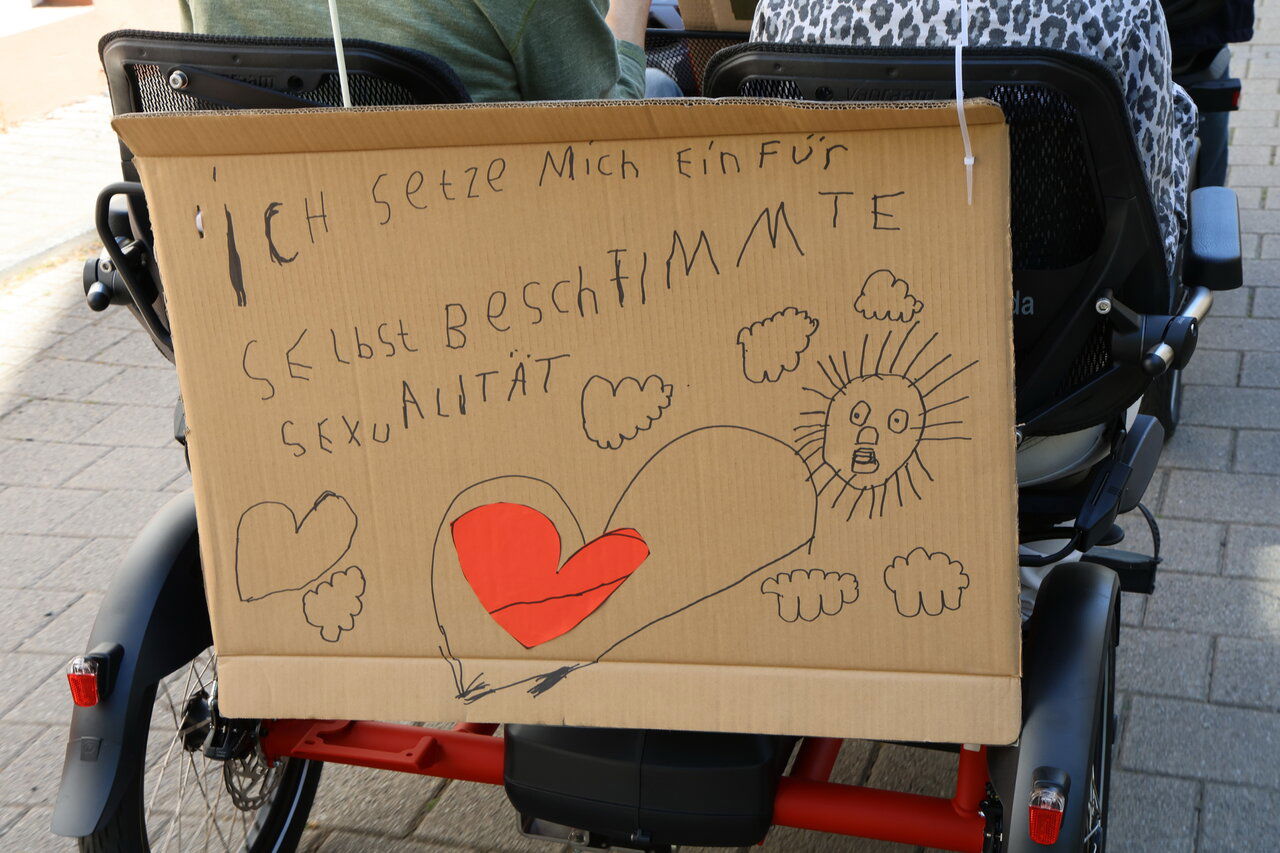 ICH Setze Mich Ein Für
SELbst BeschtIMMTE
SEXUALITÄT
vanraam
vanraam